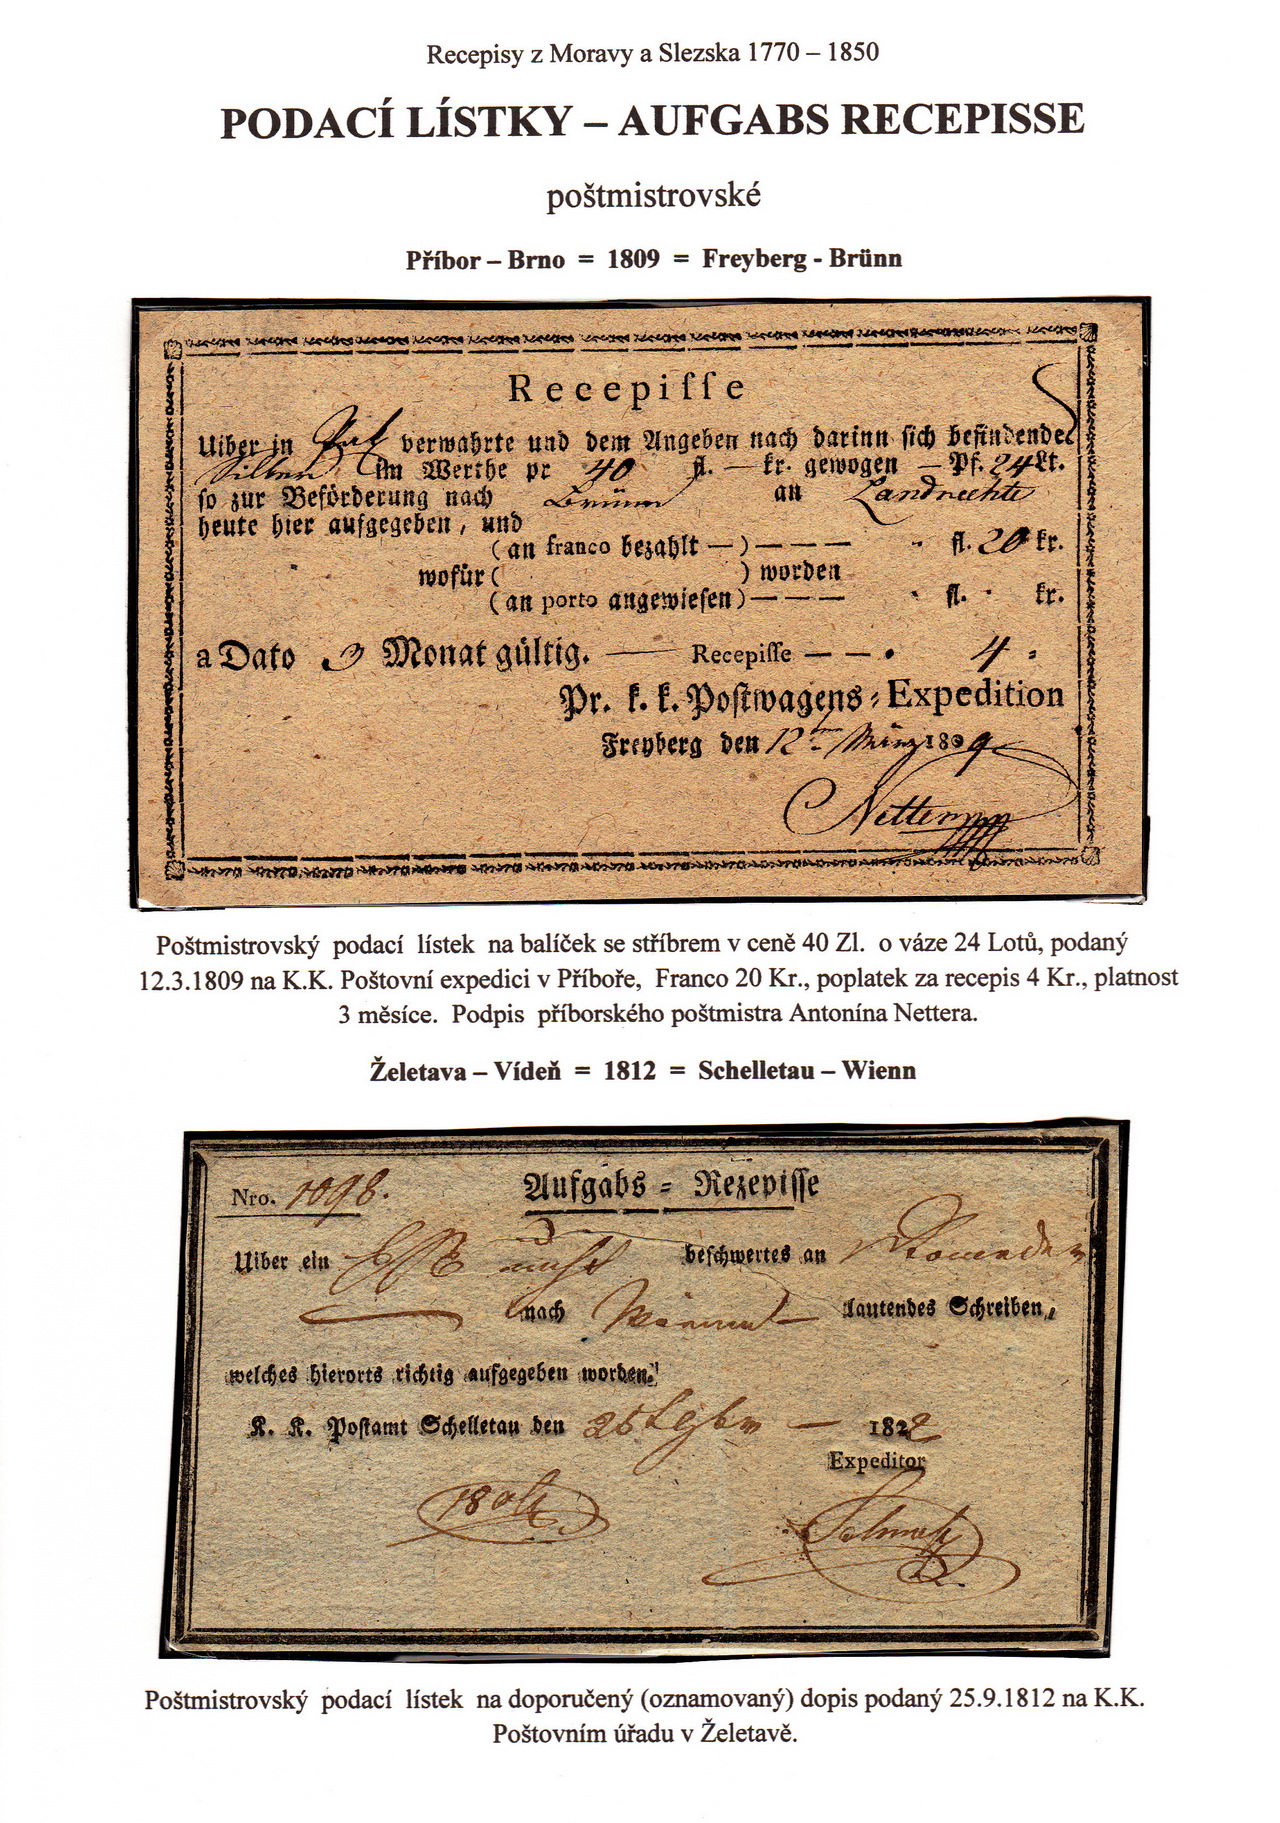 Recepisy z Moravy a Slezska 1770 – 1850
PODACÍ LÍSTKY – AUFGABS RECEPISSE
poštmistrovské
Příbor – Brno = 1809 = Freyberg - Brünn
Recepiſſe
Uiber in verwahrte und dem Angeben nach darinn ſich befindende
Silber im Werthe pr 40 fl. — kr. gewogen — Pf. 24 Lt.
ſo zur Beförderung nach Brünn an Landrechte
heute hier aufgegeben, und
(an franco bezahlt —) — — — fl. 20 kr.
wofür ( ) worden
(an porto angewieſen) — — — fl. kr.
a Dato 3 Monat gültig. — Recepiſſe — — 4
Pr. k. k. Poſtwagens-Expedition
Freyberg den 12ten März 1809
Netter
Poštmistrovský podací lístek na balíček se stříbrem v ceně 40 Zl. o váze 24 Lotů, podaný
12.3.1809 na K.K. Poštovní expedici v Příboře, Franco 20 Kr., poplatek za recepis 4 Kr., platnost
3 měsíce. Podpis příborského poštmistra Antonína Nettera.
Želetava – Vídeň = 1812 = Schelletau – Wienn
Nro. 1098.
Aufgabs - Rezepiſſe
Uiber ein beſchwertes an
nach Wienn — lautendes Schreiben,
welches hierorts richtig aufgegeben worden.
K. K. Poſtamt Schelletau den 25 — 182
Expeditor
Poštmistrovský podací lístek na doporučený (oznamovaný) dopis podaný 25.9.1812 na K.K.
Poštovním úřadu v Želetavě.